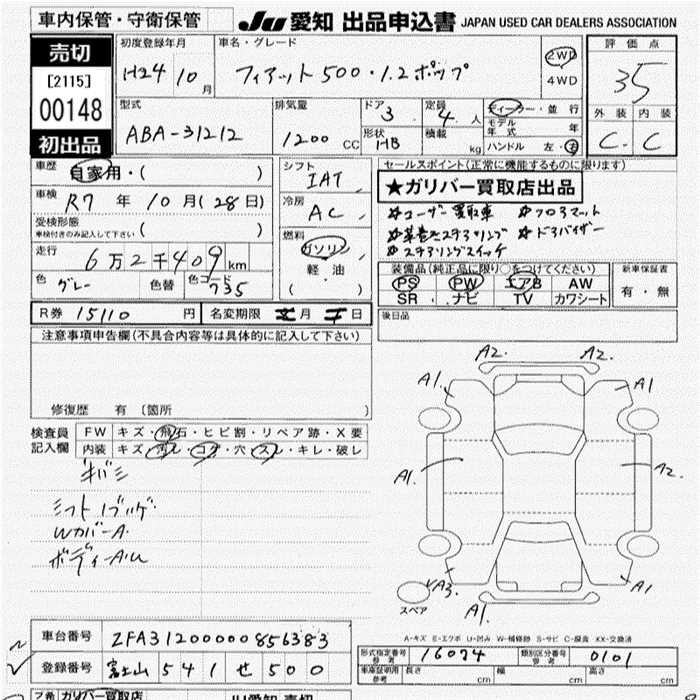 車内保管・守衛保管
JU 愛知 出品申込書 JAPAN USED CAR DEALERS ASSOCIATION
売切
[2115]
00148
初出品
初度登録年月
H24 10月
車名・グレード
フィアット500・1.2ポップ
2WD
4WD
評価点
3.5
外装 内装
C C
型式
ABA-31212
排気量
1200 CC
ドア
3
形状
HB
定員
4人
積載
kg
ディーラー・並行
モデル年式 年
ハンドル 左・右
車歴
自家用・( )
車検
R7年10月(28日)
受検形態
車検付きのみ記入して下さい ( )
走行
6万2千409km
色
グレー
色替
色コード
735
シフト
IAT
冷房
AC
燃料
ガソリン
軽油
( )
セールスポイント(正常に機能するものに限ります)
★ガリバー買取店出品
☆ユーザー買取車 ☆フロアマット
☆革巻きステアリング ☆ドアバイザー
☆ステアリングスイッチ
装備品(純正品に限り○をつけてください)
PS PW エアB AW
SR ナビ TV カワシート
新車保証書
有・無
後日品
R券 15110円 名変期限 月 日
注意事項申告欄(不具合内容等は具体的に記入して下さい)
修復歴 有 〔箇所 〕
検査員記入欄
FW キズ・飛石・ヒビ割・リペア跡・X要
内装 キズ・汚レ・コゲ・穴・スレ・キレ・破レ
キバミ
シフトノブハゲ
WカバーA
ボディーAU
A2. A2.
A1. A1
A1. A2.
YA3. A1
A1.
スペア
A-キズ E-エクボ U-凹み W-補修跡 S-サビ C-腐食 XX-交換済
車台番号 ZFA31200000856383
登録番号 富士山 541 せ 500
形式指定番号 参考 16074
類別区分番号 参考 0101
車庫証明用 参考 長さ cm 幅 cm 高さ cm
ガリバー買取店
JU愛知 売切